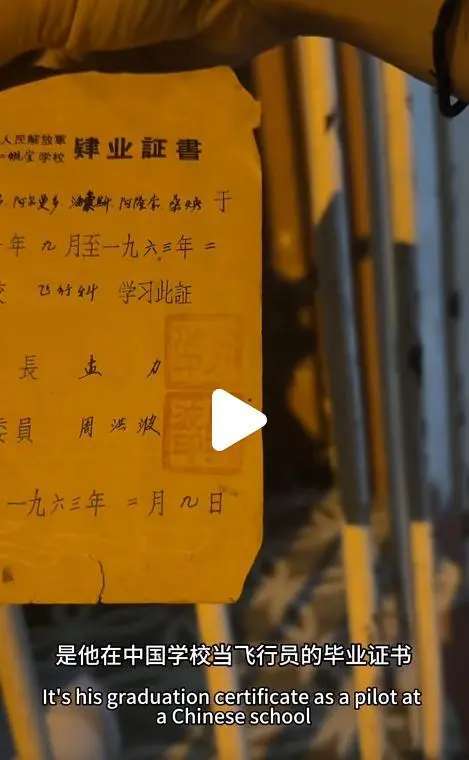 人民解放軍
航空学校 肄业証書
于
年九月至一九六三年二
飞行科 学习此証
長 力
委員 周洪波
一九六三年二月九日
是他在中国学校当飞行员的毕业证书
It's his graduation certificate as a pilot at
a Chinese school